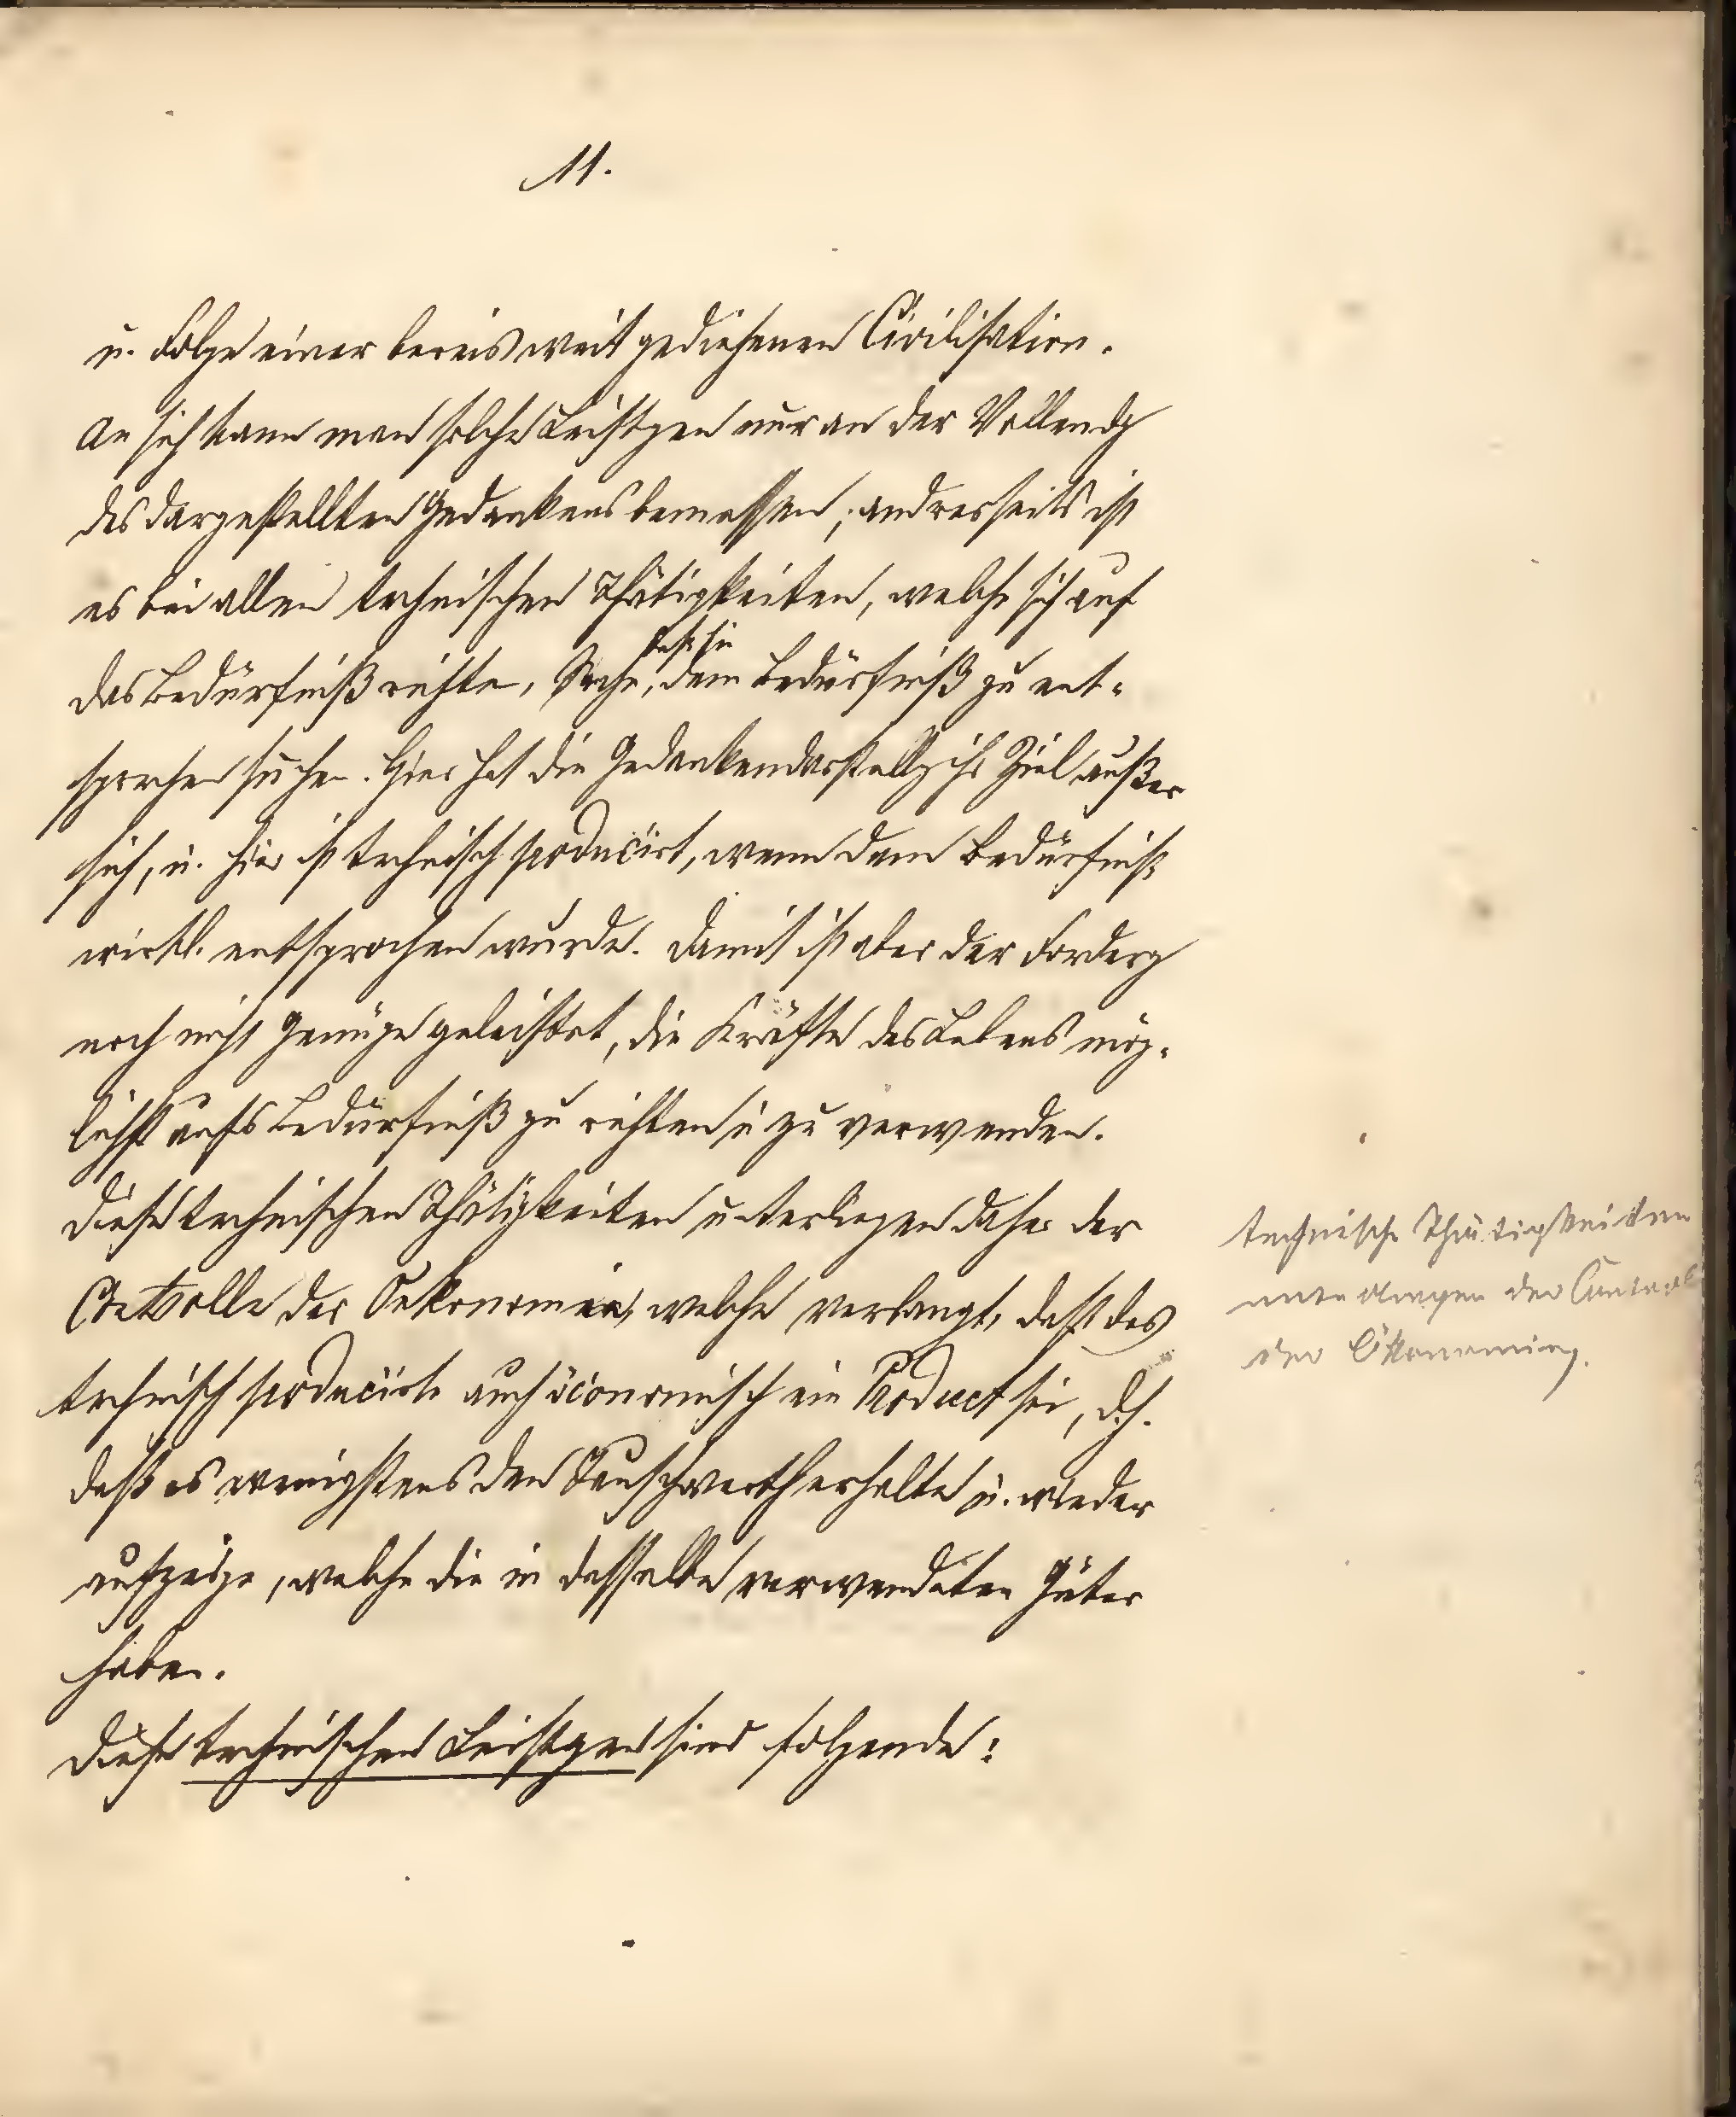 11.
u. Folge einer bereits weit gediehenen Civilisation.
An sich kann man solche Leistgen nur an der Vollendg
des dargestellten Gedankens bemessen; andrerseits ist
es bei allen technischen Thätigkeiten, welche sich auf
das Bedürfniß richte, Sache, daß sie dem Bedürfniß zu ent-
sprechen suchen. Hier hat die Gedankendarstellg ihr Ziel außer
sich, u. hier ist technisch producirt, wenn dem Bedürfniß
wirkl. entsprochen wurde. Damit ist aber der Forderg
noch nicht Genüge geleistet, die Kräfte des Lebens mög-
lichst aufs Bedürfniß zu richten u. zu verwenden.
Diese technischen Thätigkeiten unterliegen daher der
Controlle der Oekonomie, welche verlangt, daß das
technisch producirte auch öconomisch ein Product sei, d.h.
daß es wenigstens den Tauschwerth erhalte u. wieder
aufzeige, welche die in dasselbe verwendeten Güter
haben.
Diese technischen Leistgen sind folgende:
technische Thätigkeiten
unterliegen der Control
der Ökonomie